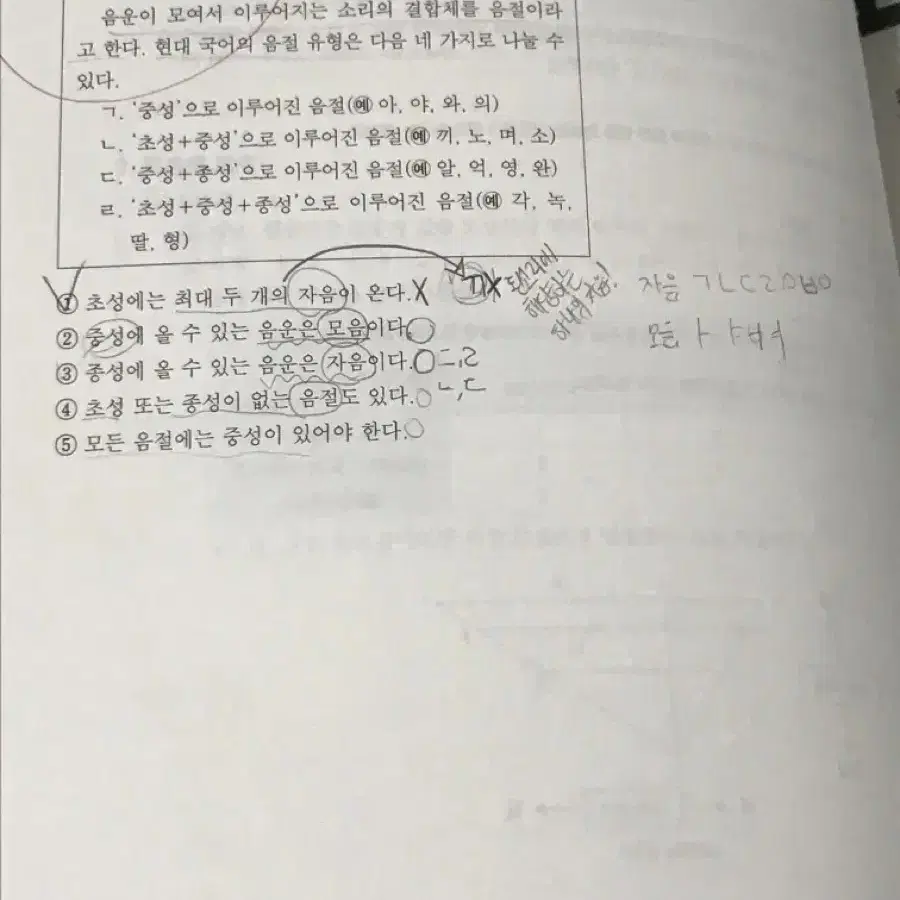 음운이 모여서 이루어지는 소리의 결합체를 음절이라
고 한다. 현대 국어의 음절 유형은 다음 네 가지로 나눌 수
있다.
ㄱ. '중성'으로 이루어진 음절(예 아, 야, 와, 의)
ㄴ. '초성+중성'으로 이루어진 음절(예 끼, 노, 며, 소)
ㄷ. '중성+종성'으로 이루어진 음절(예 알, 억, 영, 완)
ㄹ. '초성+중성+종성'으로 이루어진 음절(예 각, 녹,
딸, 형)
① 초성에는 최대 두 개의 자음이 온다.X ㄲX 된소리에 자음 ㄱㄴㄷㄹㅁㅂㅇ
② 중성에 올 수 있는 음운은 모음이다.○ 모음 ㅏ ㅑ ㅕ
③ 종성에 올 수 있는 음운은 자음이다.○ ㄷ,ㄹ
④ 초성 또는 종성이 없는 음절도 있다.○ ㄴ,ㄷ
⑤ 모든 음절에는 중성이 있어야 한다.○